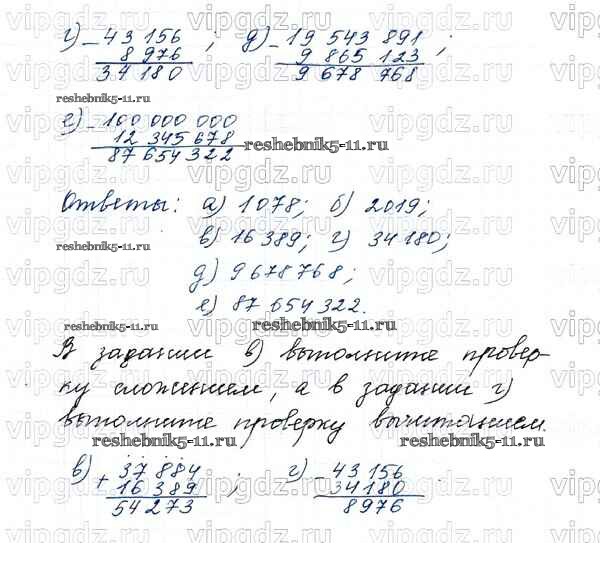 г) - 43 156 ; д) - 19 543 891 ;
8 976 9 865 123
34 180 9 678 768
reshebnik5-11.ru
е) - 100 000 000
12 345 678
87 654 322
reshebnik5-11.ru
Ответы: а) 1078; б) 2019;
в) 16 389; г) 34 180;
reshebnik5-11.ru
д) 9 678 768;
е) 87 654 322.
reshebnik5-11.ru reshebnik5-11.ru
В задании в) выполните провер-
ку сложением, а в задании г)
выполните проверку вычитанием.
reshebnik5-11.ru reshebnik5-11.ru
в) + 37 884 ; г) - 43 156
16 389 34 180
54 273 8 976
vipgdz.ru